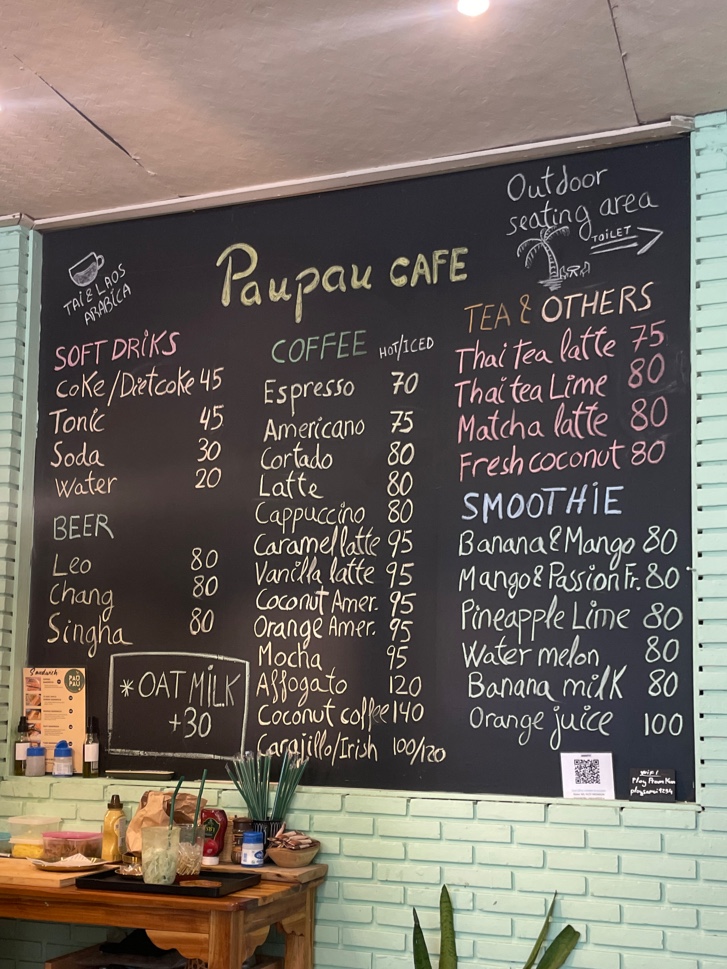 Outdoor
seating area
TOILET
TAI & LAOS
ARABICA
Paupau CAFE
SOFT DRiKS
Coke/Dietcoke 45
Tonic 45
Soda 30
Water 20
BEER
Leo 80
Chang 80
Singha 80
*OAT MiLK
+30
COFFEE HOT/ICED
Espresso 70
Americano 75
Cortado 80
Latte 80
Cappuccino 80
Caramel latte 95
Vanilla latte 95
Coconut Amer. 95
Orange Amer. 95
Mocha 95
Affogato 120
Coconut coffee 140
Carajillo/Irish 100/120
TEA & OTHERS
Thai tea latte 75
Thai tea Lime 80
Matcha latte 80
Fresh coconut 80
SMOOTHiE
Banana & Mango 80
Mango & Passion Fr. 80
Pineapple Lime 80
Water melon 80
Banana milk 80
Orange juice 100
Sandwich
PAU
PAU